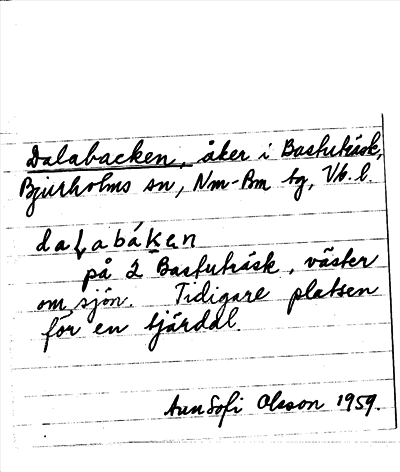 Dalabacken, åker i Bastuträsk,
Bjurholms sn, Nm-Bm tg, Vb. l.
daɽabàkan
på 2 Bastuträsk, väster
om sjön. Tidigare platsen
för en tjärdal.
AnnSofi Olsson 1959.